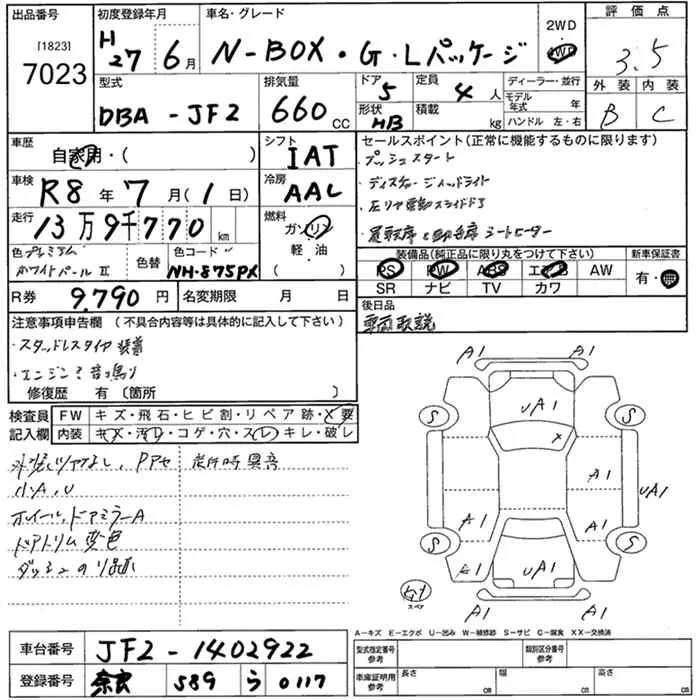 出品番号
[1823]
7023
初度登録年月
H27年6月
車名・グレード
N-BOX・G・Lパッケージ
2WD
4WD
評価点
3.5
型式
DBA-JF2
排気量
660 CC
ドア
5
定員
4人
形状
HB
積載
kg
ディーラー・並行
モデル年式 年
ハンドル 左・右
外装 内装
B C
車歴
自家用・( )
シフト
IAT
車検
R8年7月(1日)
冷房
AAC
走行
13万9千770km
燃料
ガソリン
軽・油
( )
色 プレミアム
ホワイトパールⅡ
色替
色コード
NH-875PX
R券
9,790円
名変期限 月 日
セールスポイント(正常に機能するものに限ります)
・プッシュスタート
・ディスチャージヘッドライト
・左リヤ電動スライドドア
・運転席と助手席シートヒーター
装備品(純正品に限り丸をつけて下さい)
PS PW ABS エアB AW
SR ナビ TV カワ
新車保証書
有・無
後日品
車両取説
注意事項申告欄(不具合内容等は具体的に記入して下さい)
・スタッドレスタイヤ装着
・エンジン音鳴り
修復歴 有(箇所 )
検査員記入欄
FW キズ・飛石・ヒビ割・リペア跡・X要
内装 キズ・汚レ・コゲ・穴・スレ・キレ・破レ
小A、U
ホイール、ドアミラーA
ドアトリム変色
A1 A1
S S
UA1
X
A1
UA1
A1 A1
S S
A1 UA1
A1 A1
スペア
A-キズ E-エクボ U-凹み W-補修跡 S-サビ C-腐食 XX-交換済
車台番号
JF2-1402922
登録番号
奈良 589 う 0117
型式指定番号
参考
類別区分番号
参考
車庫証明用
参考
長さ cm 幅 cm 高さ cm